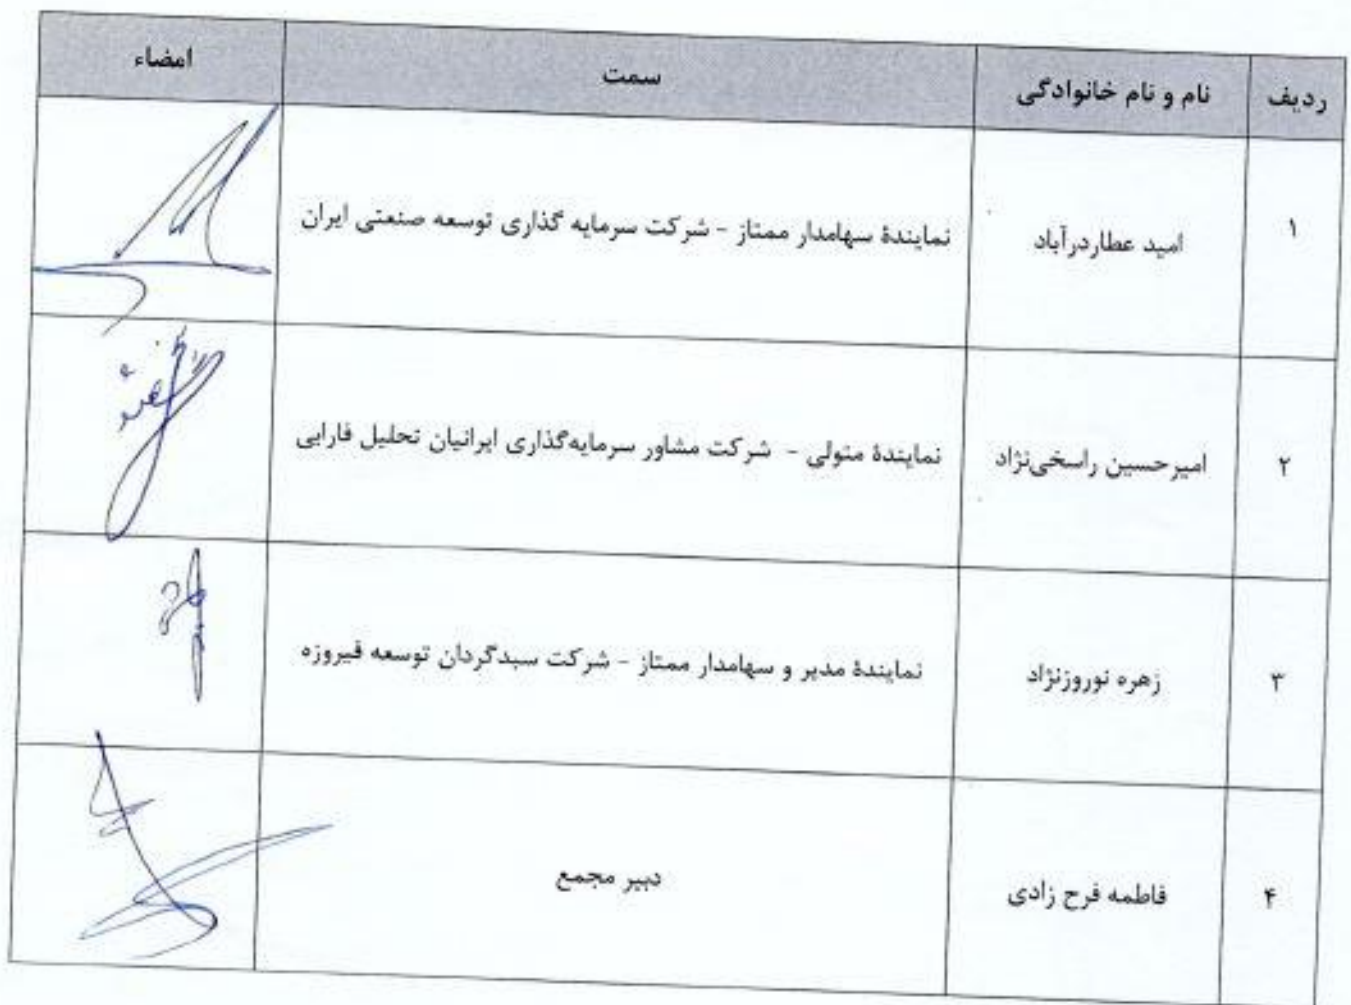 ردیف نام و نام خانوادگی سمت امضاء
۱ امید عطاردرآباد نمایندهٔ سهامدار ممتاز - شرکت سرمایه گذاری توسعه صنعتی ایران
۲ امیرحسین راسخی‌نژاد نمایندهٔ متولی - شرکت مشاور سرمایه‌گذاری ایرانیان تحلیل فارابی
۳ زهره نوروزنژاد نمایندهٔ مدیر و سهامدار ممتاز - شرکت سبدگردان توسعه فیروزه
۴ فاطمه فرح زادی دبیر مجمع